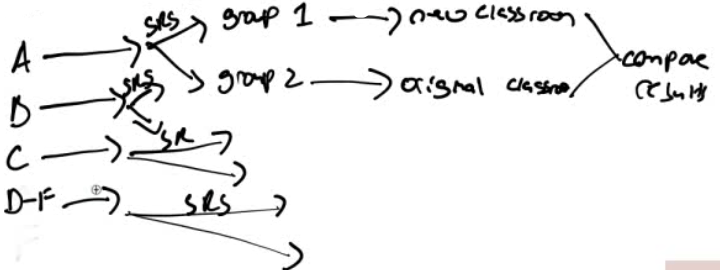 SRS group 1 new classroom
A
SRS group 2 original classroom compare
B results
SR
C
D-F SRS